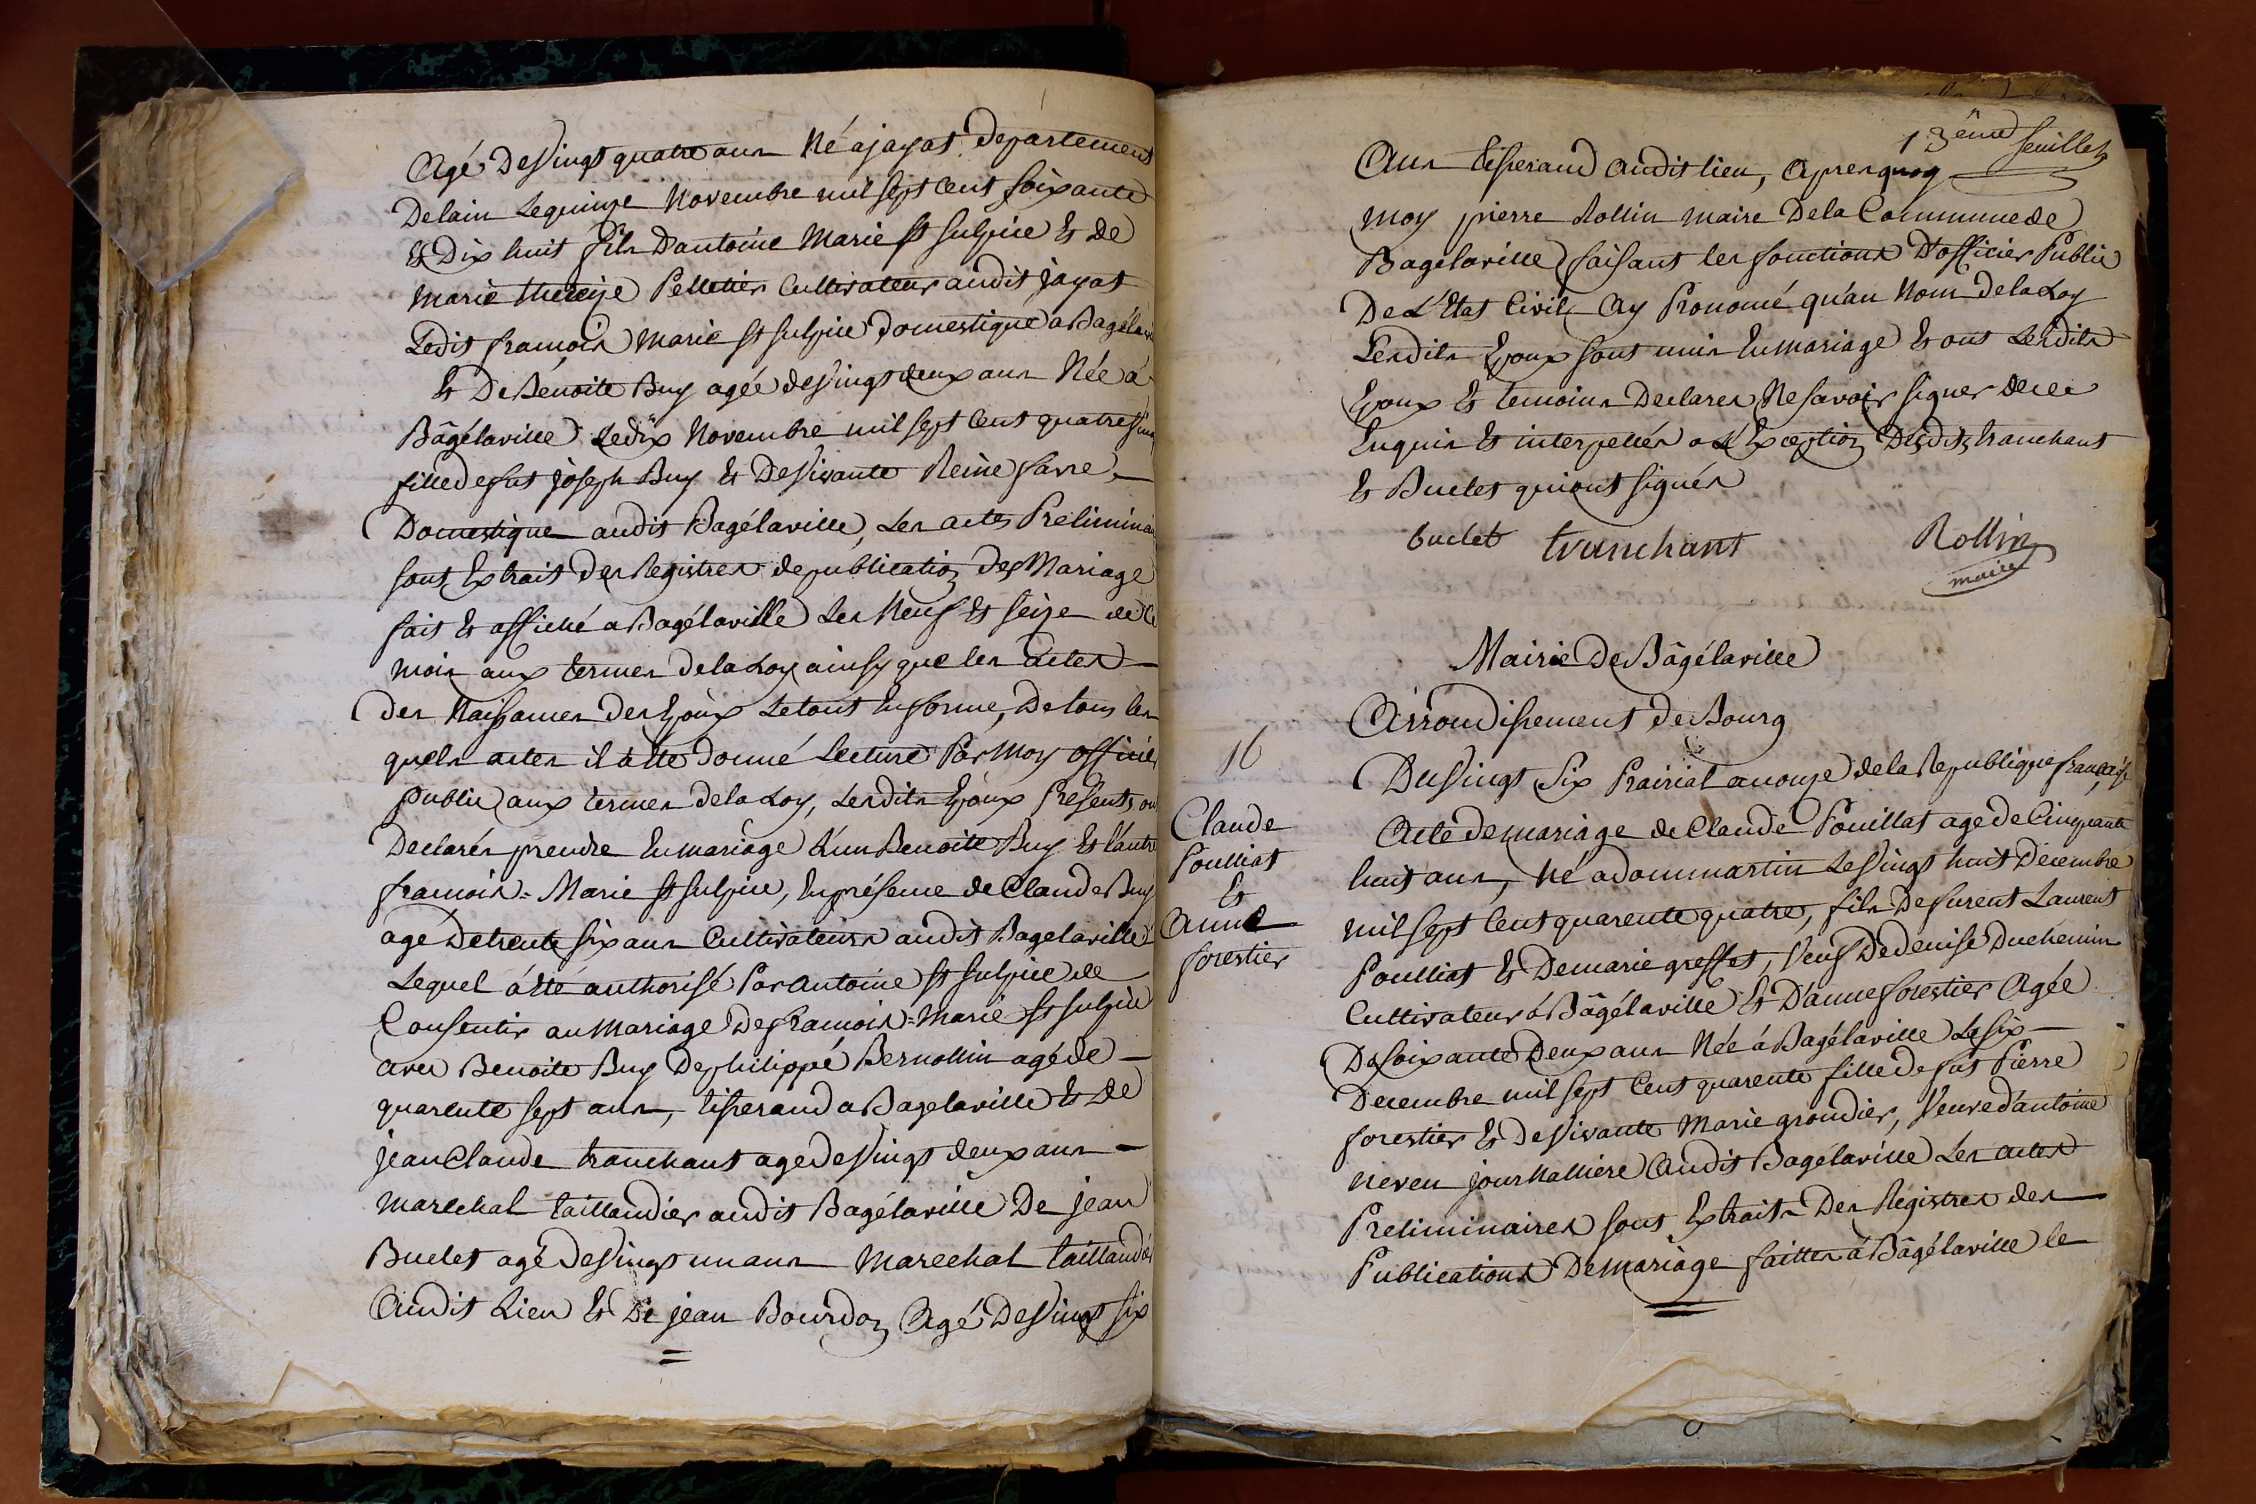 Agé De Vingt quatre ans Né a jayat departement
Delain Le quinze Novembre mil sept Cent soixante
Et Dix huit fils D'antoine Marie st sulpice Et de
Marie thereze Pelletier Cultivateur audit jayat
Ledit francois Marie st sulpice domestique a Bagélavil
Et De Benoite Buy agée de Vingt deux ans Née à
Bâgélaville Le dix Novembre mil sept Cent quatre Vingt
fille defut joseph Buy Et De Vivante Reine favre
Domestique audit Bagélaville, Les actes Preliminai
sont Extrait des Registres de publication des Mariage
fait Et affiché a Bagélaville Les Neuf Et seize de Ce
mois aux termes de la Loy ainsy que les actes
des Naissances des Epoux Le tout En forme, De tous les
quels actes il à été donné Lecture Par Moy officie
public aux termes de la Loy, Lesdits Epoux Presents on
Declarés prendre En mariage L'un Benoite Buy Et L'autre
francois = Marie st sulpice, En présence de Claude Buy
age De trente six ans Cultivateurs audit Bagelaville
Lequel à été authorisé Par antoine st sulpice de
Consentir au Mariage De francois = Marie st sulpice
avec Benoite Buy De philippe Bernollin agé de
quarente sept ans, tisserand a Bagelaville Et De
jean Claude tranchant age de Vingt deux ans
Marechal taillandier audit Bagélaville De jean
Buclet agé De Vingt un ans Marechal taillandier
Audit Lieu Et De jean Bourdon Agé De Vingt six
13ème feuillet
Ans tisserand audit lieu, apres quoy
Moy pierre Rollin maire De la Commune de
Bagelaville faisant les fonctions D'officier Public
De L'Etat Civil Ay Prononcé qu'au Nom de la Loy
Lesdits Epoux sont unis En mariage Et ont Lesdits
Epoux Et temoins Declarer Ne savoir signer de ce
Enquis Et interpellés a L'Exception Desdits tranchant
Et Buclet qui ont signés
buclet tranchant Rollin
maire
Mairie De Bâgélaville
Arrondissement de Bourg
16
Claude
Poulliat
Et
Anne
forestier
Du Vingt Six Prairial an onze de la Republique francaise
Acte de mariage de Claude Pouillat age de Cinquante
huit ans, Né a dommartin Le Vingt huit Decembre
mil sept Cent quarente quatre, fils De furent Laurent
Poulliat Et De marie greffet, Veuf De denise Duchemin
Cultivateur à Bâgélaville Et D'anne forestier Agée
De soixante Deux ans Née à Bagélaville Le six
Decembre mil sept Cent quarente fille de fut Pierre
forestier Et De Vivante Marie grondier, Veuve d'antoine
neveu jour Nalliere Audit Bagélaville Les actes
Preliminaires sont Extraits Des Registres des
Publications De mariage faittes à Bâgélaville le